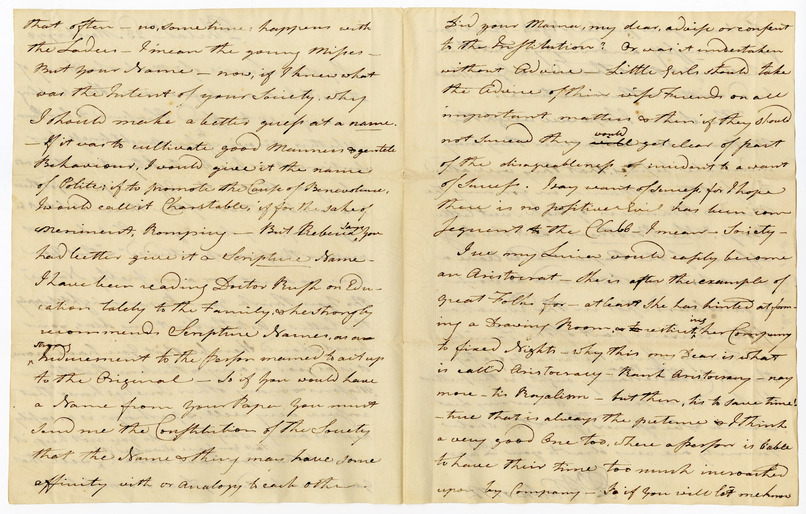 that often — no, sometime: happens with
the Ladies — I mean the young Misses —
But your Name — now, if I knew what
was the Intent of your Society, why
I should make a better guess at a name.
— If it was to cultivate good Manners & gentele
Behaviour, I would give it the name
of Polite; if to promote the Cause of Benevolence,
I would call it Charitable, if for the sake of
meriment, Romping — But Rebecca says, you
had better give it a Scripture Name —
I have been reading Doctor Rush on Edu-
cation lately to the Family, & he strongly
recommends Scripture Names, as a
strong Inducement to the Person named to act up
to the Original — So if you would have
a Name from your Papa you must
send me the Constitution of the Society
that the Name & thing may have some
affinity with or Analogy to each other.
Did your Mama, my dear, advise or consent
to the Institution? Or was it undertaken
without Advice — Little Girls should take
the Advice of their wise Friends on all
important matters & then if they should
not succeed they would get clear of part
of the disagreableness incident to a want
of Success: I say want of success, for I hope
there is no positive Evil has been con-
sequent to the Clubb — I mean — Society —
I see my Luisa would easily become
an Aristocrat — She is after the example of
great Folks for — at least she has hinted at form-
ing a Drawing Room, & restricting her Company
to fixed Nights — why this my Dear is what
is called Aristocracy — Rank Aristocracy — nay
more — tis Royalism — but then, tis to save time:
— true that is always the pretence & I think
a very good One too, where a person is liable
to have their time too much incroached
upon by Company — So if you will let me know